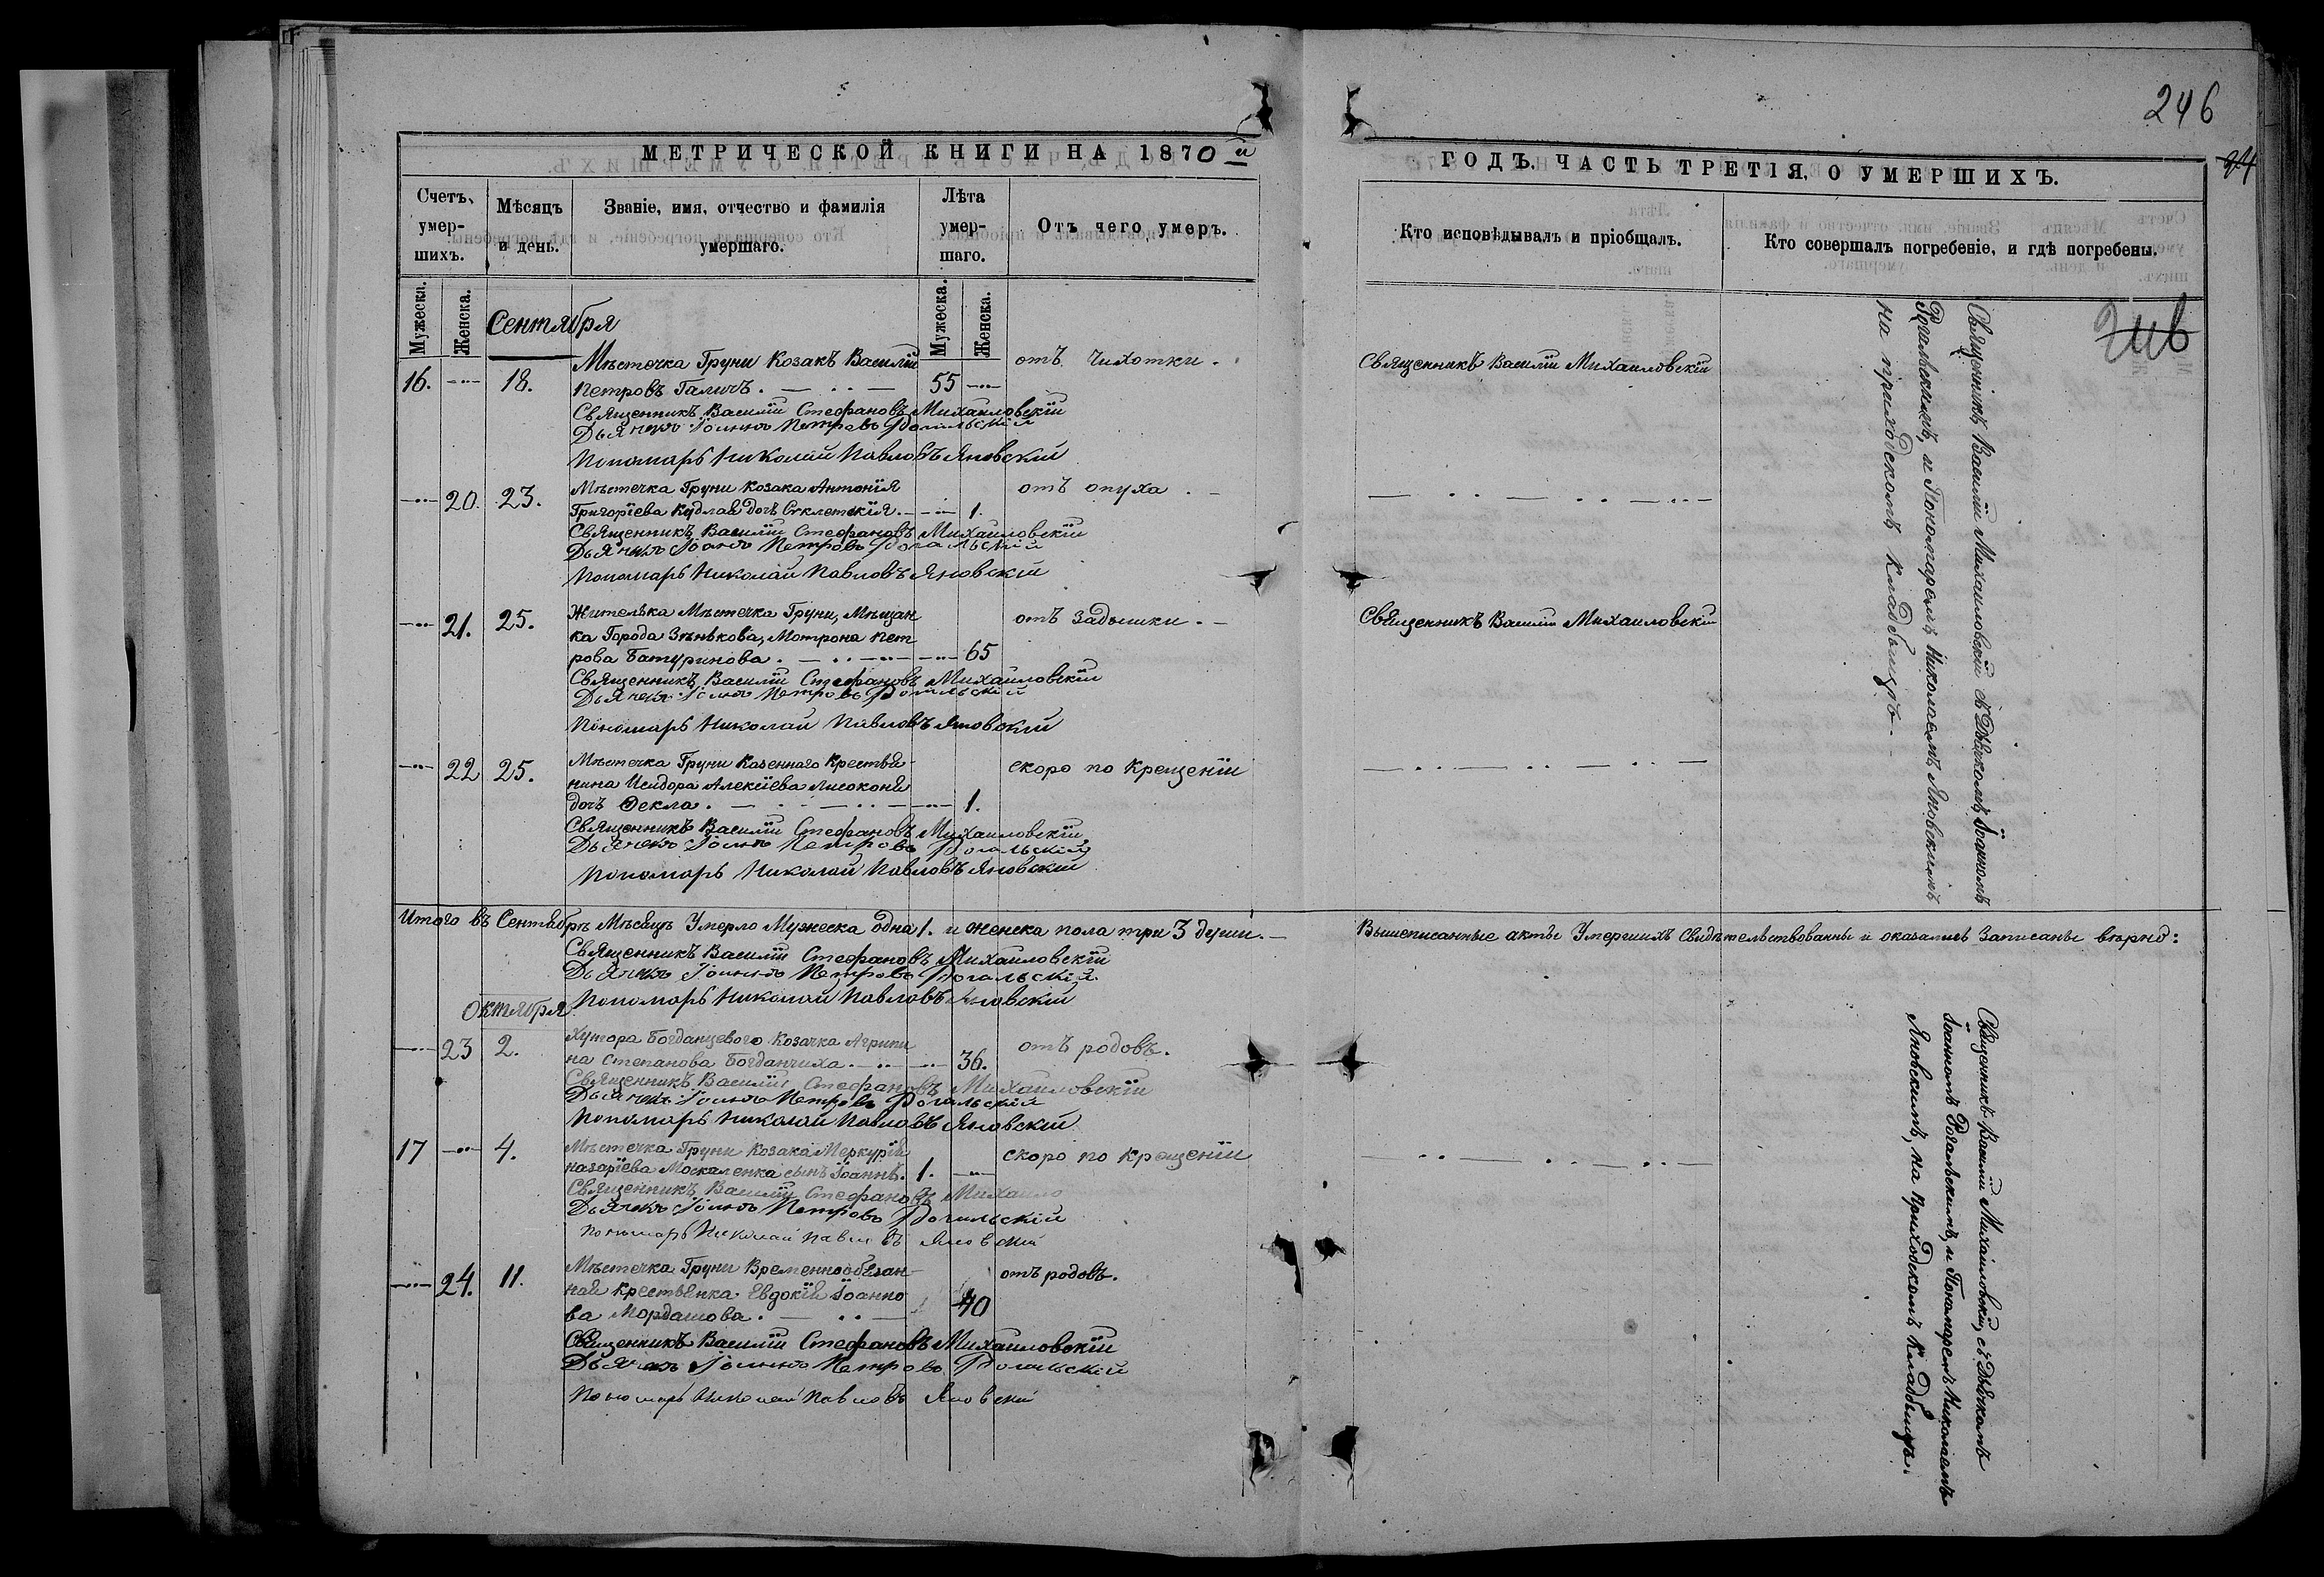 246
24
МЕТРИЧЕСКОЙ КНИГИ НА 1870 й
ГОДЪ. ЧАСТЬ ТРЕТІЯ, О УМЕРШИХЪ.
Счетъ умер-шихъ.
Мѣсяцъ и день.
Званіе, имя, отчество и фамилія умершаго.
Лѣта умер-шаго.
Отъ чего умеръ.
Кто исповѣдывалъ и пріобщалъ.
Кто совершалъ погребеніе, и гдѣ погребены.
Мужеска.
Женска.
Мужеска.
Женска.
Сентября
Мѣстечка Груни Козакъ Василій отъ чихотки.
16. 18. Петровъ Галичъ. 55
Священникъ Василій Михаиловскій
Священникъ Василій Стефановъ Михаиловскій
Дьячекъ Іоаннъ Петровъ Рогальскій
Пономарь Николай Павловъ Яновскій
20. 23. Мѣстечка Груни Козака Антонія отъ опуха.
Григоріева Кудлая дочь 1.
Священникъ Василій Стефановъ Михаиловскій
Дьячекъ Іоаннъ Петровъ Рогальскій
Пономарь Николай Павловъ Яновскій
21. 25. Жителька Мѣстечка Груни, Мѣщан отъ Задышки.
ка Города Зѣнькова, Мотрона Пет
рова Батуринова. 65
Священникъ Василій Михаиловскій
Священникъ Василій Стефановъ Михаиловскій
Дьячекъ Іоаннъ Петровъ Рогальскій
Пономарь Николай Павловъ Яновскій
22 25. Мѣстечка Груни Казеннаго Крестья скоро по Крещеніи
нина Исидора Алексіева Лисоконя
дочь Фекла. 1.
Священникъ Василій Стефановъ Михаиловскій
Дьячекъ Іоаннъ Петровъ Рогальскій
Пономарь Николай Павловъ Яновскій
Священникъ Василій Михаиловскій съ Дьячкомъ Іоанномъ
Рогальскимъ, и Пономаремъ Николаемъ Яновскимъ
на приходскомъ кладбищѣ
Итого въ Сентябрѣ Мѣсяцѣ Умерло Мужеска одна 1. и женска пола три 3 души.
Вышеписанные акты Умершихъ Свидѣтельствованны и оказались Записаны вѣрно:
Священникъ Василій Стефановъ Михаиловскій
Дьячекъ Іоаннъ Петровъ Рогальскій
Пономарь Николай Павловъ Яновскій
Октября
23 2. Хутора Богданцевого Козачка Агрипи отъ родовъ.
на Степанова Богданчиха. 36.
Священникъ Василій Стефановъ Михаиловскій
Дьячекъ Іоаннъ Петровъ Рогальскій
Пономарь Николай Павловъ Яновскій
17 4. Мѣстечка Груни Козака Меркурія скоро по Крещеніи
Назаріева Москаленка сынъ Іоаннъ. 1.
Священникъ Василій Стефановъ Михаило
Дьячекъ Іоаннъ Петровъ Рогальскій
Пономарь Николай Павловъ Яновскій
24. 11. Мѣстечка Груни Временнообязан отъ родовъ.
ная Крестьянка Евдокія Іоанно
ва Мордашова. 40
Священникъ Василій Стефановъ Михаиловскій
Дьячекъ Іоаннъ Петровъ Рогальскій
Пономарь Николай Павловъ Яновскій
Священникъ Василій Михаиловскій, съ Дьячкомъ
Іоанномъ Рогальскимъ, и Пономаремъ Николаемъ
Яновскимъ, на приходскомъ Кладбищѣ.